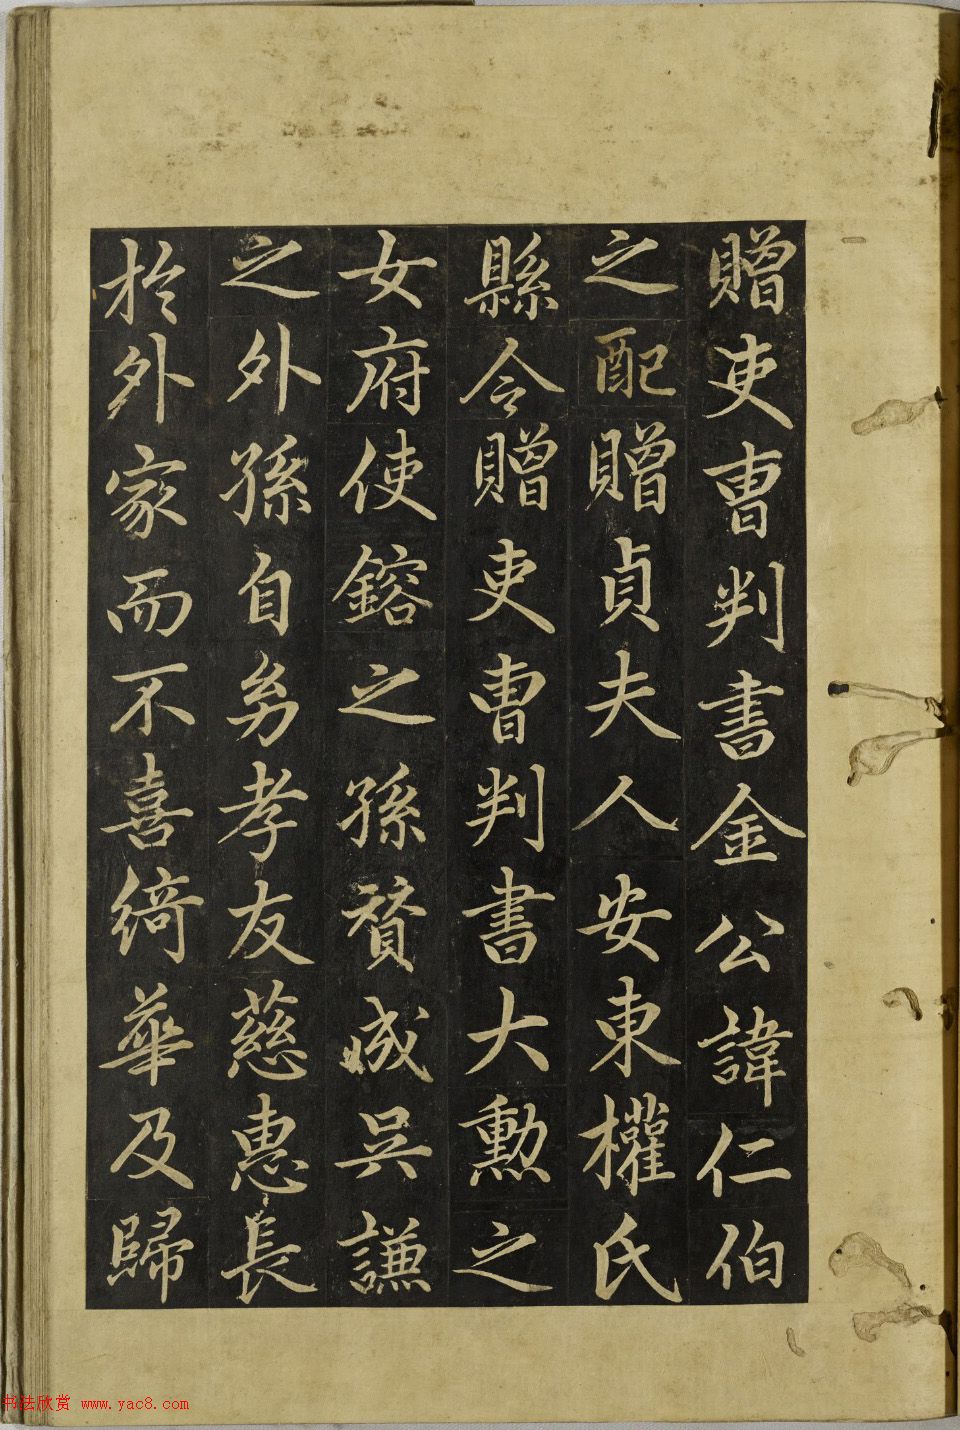 贈吏曺判書金公諱仁伯
之配贈貞夫人安東權氏
縣令贈吏曺判書大勲之
女府使鎔之孫賛成吳謙
之外孫自㓜孝友慈惠長
扵外家而不喜綺華及歸
书法欣赏 www.yac8.com